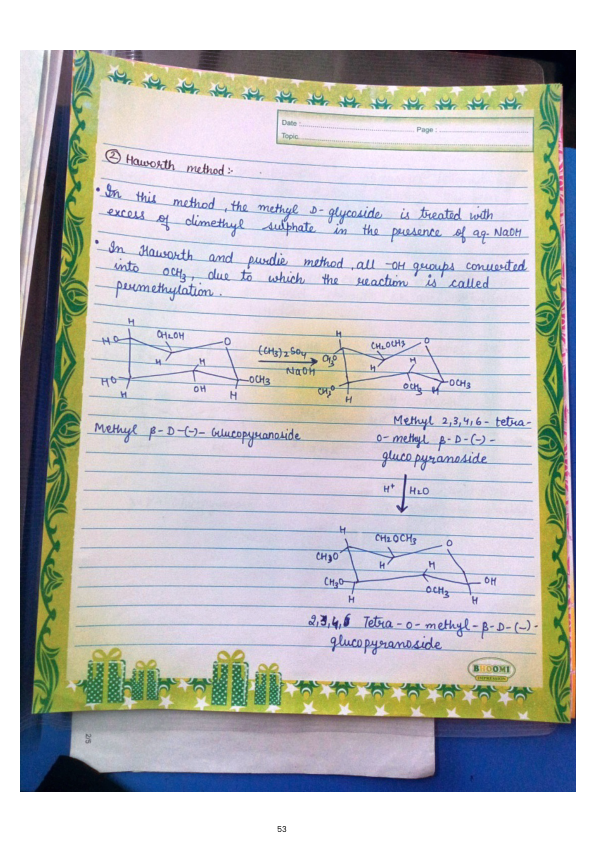 Date : Page :
Topic
② Haworth method :-
• In this method, the methyl D-glycoside is treated with
excess of dimethyl sulphate in the presence of aq. NaOH
• In Haworth and purdie method, all -OH groups converted
into OCH3, due to which the reaction is called
permethylation.
H
HO CH2OH O
H H
HO OH H OCH3
H
(CH3)2SO4
NaOH
H
CH3O CH2OCH3 O
H H
CH3O OCH3 H OCH3
H
Methyl β-D-(-)-Glucopyranoside
Methyl 2,3,4,6-tetra-
O-methyl β-D-(-)-
glucopyranoside
H+ H2O
H
CH3O CH2OCH3 O
H H
CH3O OCH3 H OH
H
2,3,4,6 Tetra-O-methyl-β-D-(-)-
glucopyranoside
BHOOMI
2/5
53